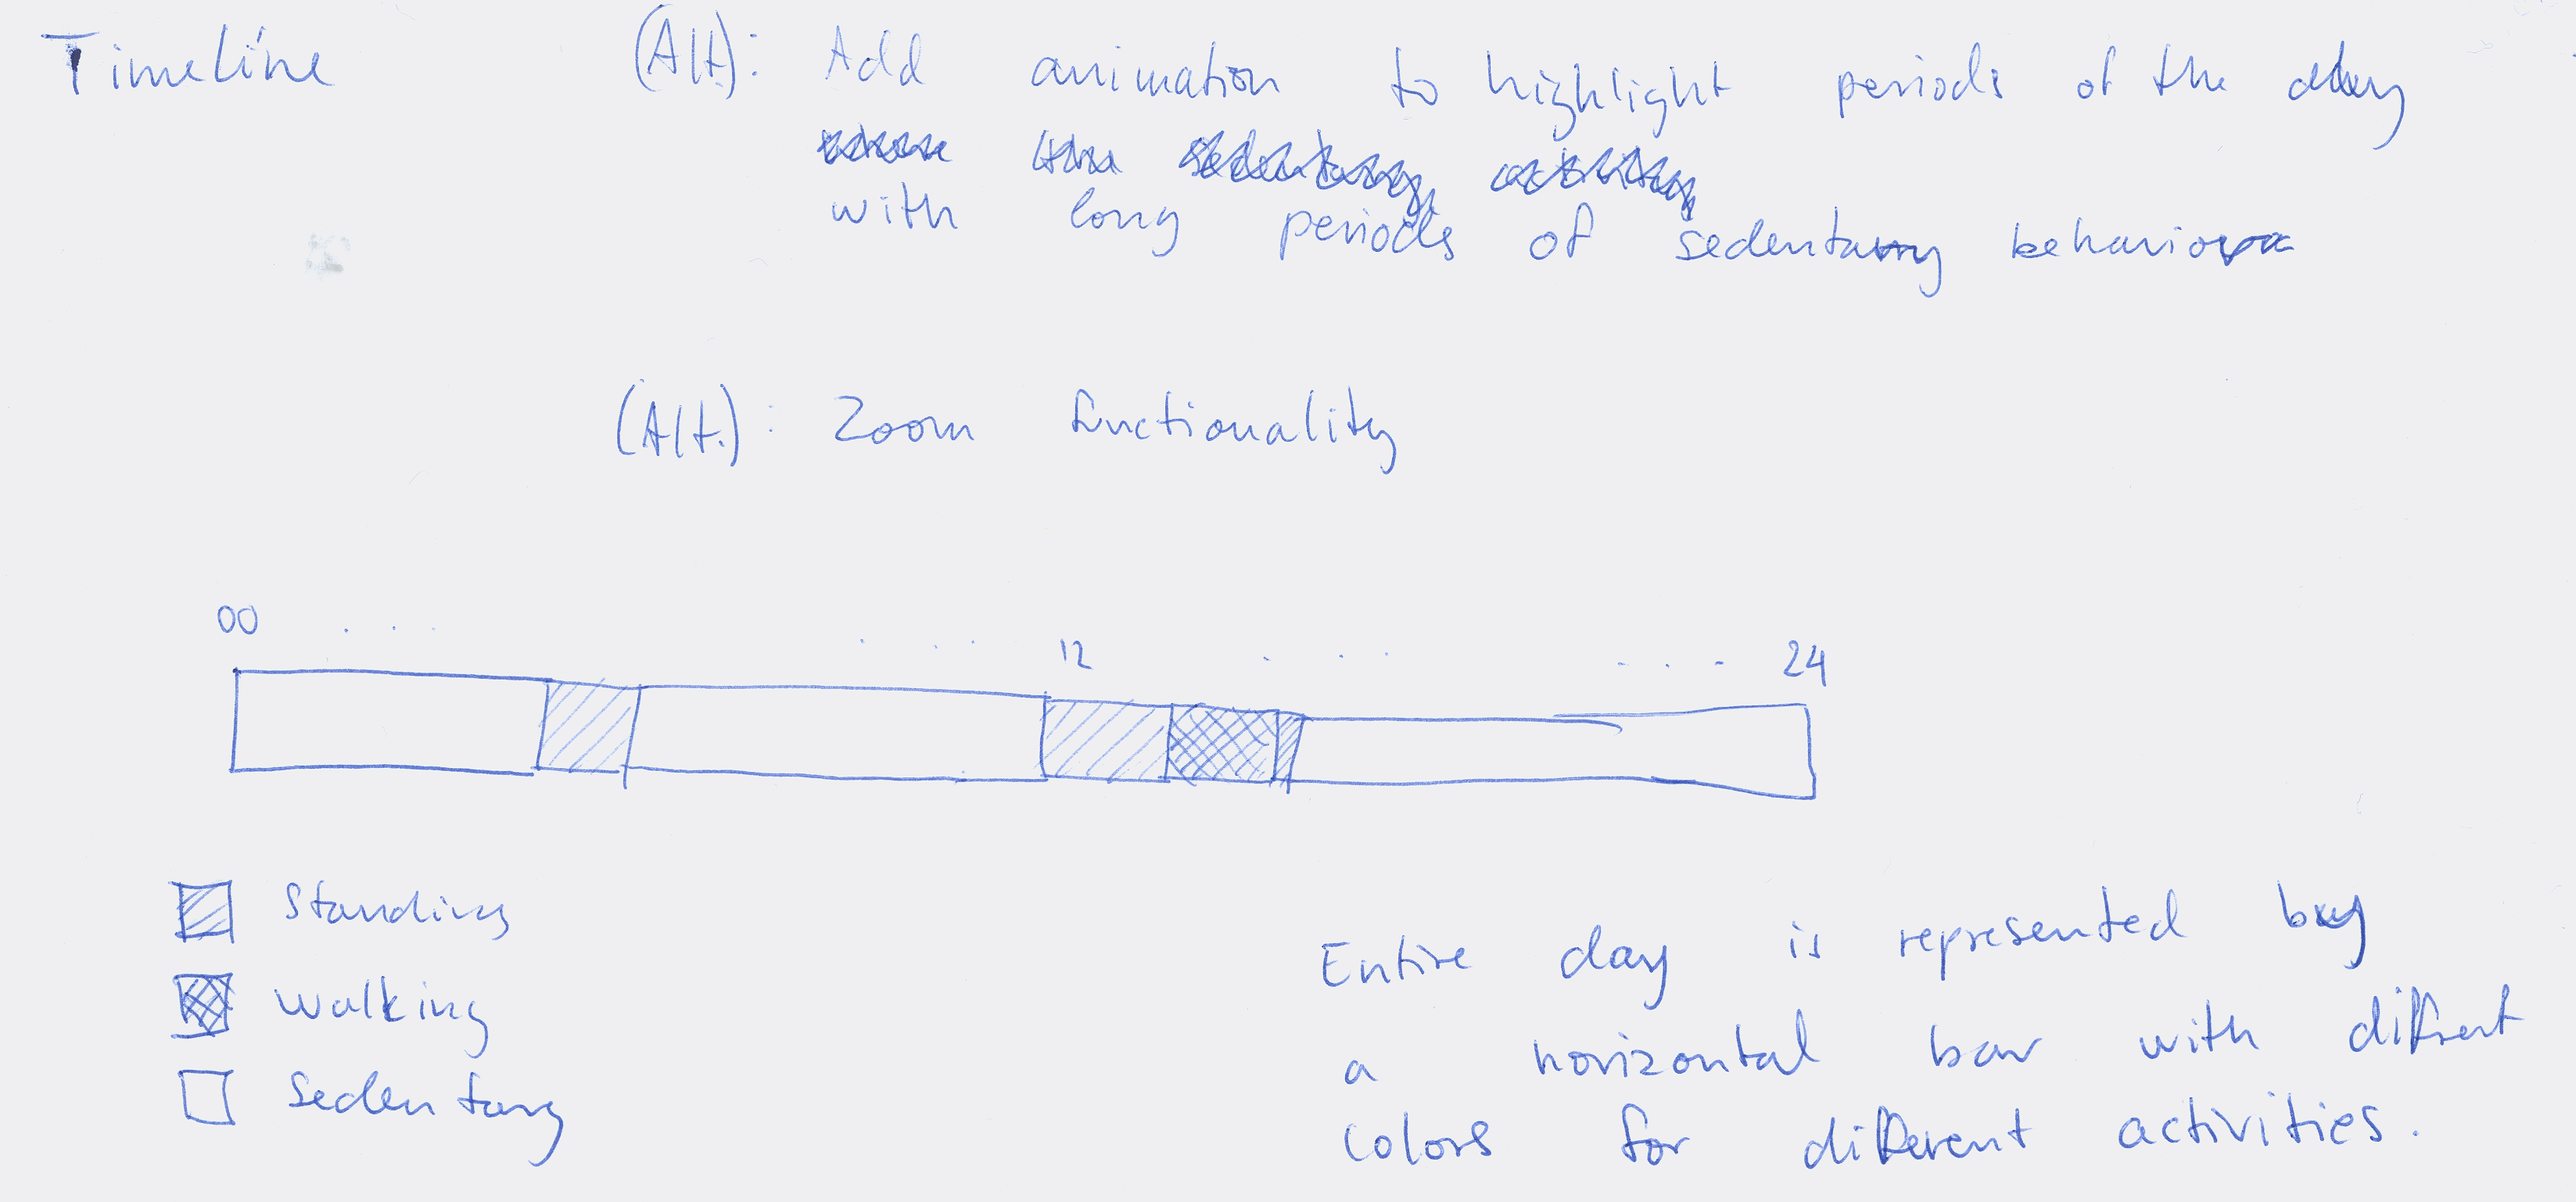 Timeline
(Alt): Add animation to highlight periods of the day
with long periods of sedentary behavior
(Alt.): Zoom functionality
00 . . . . . . 12 . . . . . . 24
Standing
Walking
Sedentary
Entire day is represented by
a horizontal bar with diffrent
colors for different activities.